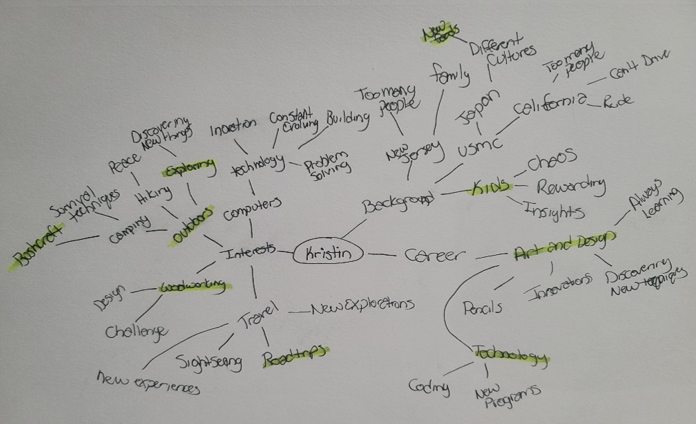 New
foods
Different
Cultures
family
Too many
people
Can't Drive
California
Rude
Japan
USMC
Too many
people
New
Jersey
Background
Kids
Chaos
Rewarding
Insights
Discovering
New things
Inovation
Constant
Evolving
Building
Peace
Exploring
technology
Problem
Solving
Survival
techniques
Hiking
Bushcraft
Camping
Outdoors
Computers
Interests
Kristin
Career
Art and Design
Always
Learning
Pencils
Innovations
Discovering
New techniques
Technology
Coding
New
Programs
Design
Woodworking
Challenge
Travel
New Explorations
Sightseeing
Roadtrips
New experiences